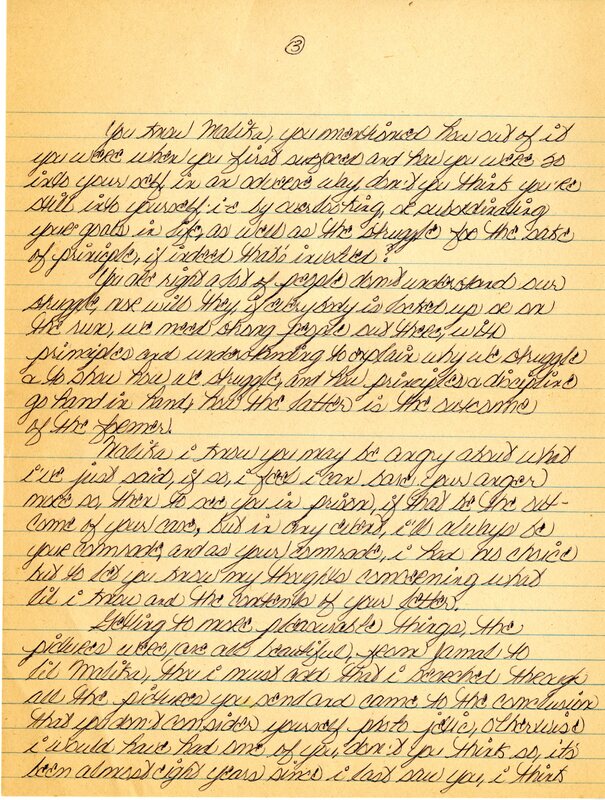 3
You know Malika, you mentioned how out of it
you were when you first surfaced and how you were so
into your self in an adverse way, don't you think you're
still into yourself, i.e by overlooking, or subordinating
your goals in life as well as the struggle for the sake
of principle, if indeed that's involved?
You are right a lot of people don't understand our
struggle, nor will they, if everybody is locked up or on
the run, we need strong people out there, with
principles and understanding to explain why we struggle
& to show how we struggle, and how principles & discipline
go hand in hand, how the latter is the outcome
of the former.
Malika i know you may be angry about what
i've just said, if so, i feel i can bare your anger
more so, then to see you in prison, if that be the out-
come of your case, but in any event, i'll always be
your comrade, and as your comrade, i had no choice
but to let you know my thoughts concerning what
lil i know and the contents of your letter.
Getting to more pleasurable things, the
pictures were/are all beautiful, from Jamal to
lil Malika, tho i must add that i serched through
all the pictures you sent and came to the conclusion
that you don't consider yourself photo jetic, otherwise
i would have had one of you, don't you think so, it's
been almost eight years since i last saw you, i think